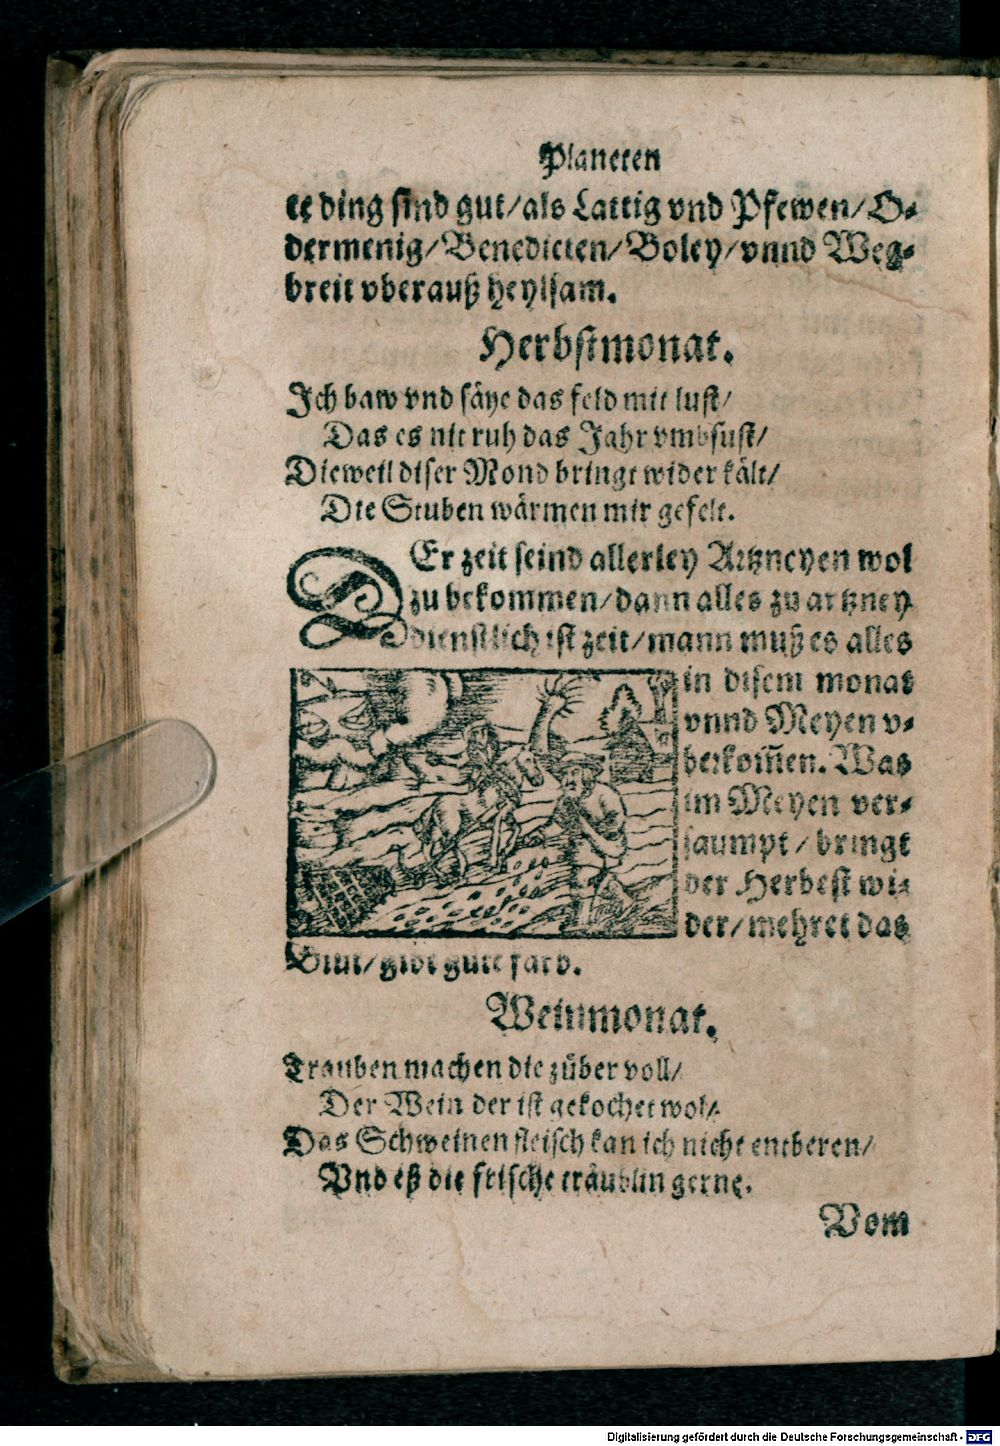 Planeten
te ding sind gut/als Lattig vnd Pfewen/O-
dermenig/Benedicten/Boley/vnnd Weg-
breit vberauß heylsam.
Herbstmonat.
Ich baw vnd säye das feld mit lust/
Das es nit ruh das Jahr vmbsust/
Dieweil diser Mond bringt wider kält/
Die Stuben wärmen mir gefelt.
DEr zeit seind allerley Artzneyen wol
zu bekommen/dann alles zu artzney
dienstlich ist zeit/mann muß es alles
in disem monat
vnnd Meyen v-
berkom̃en. Was
im Meyen ver-
saumpt/bringt
der Herbest wi-
der/mehret das
Blut/gibt gute farb.
Weinmonat.
Trauben machen die züber voll/
Der Wein der ist gekochet wol/
Das Schweinen fleisch kan ich nicht entberen/
Vnd iß die frische träublin gerne.
Vom
Digitalisierung gefördert durch die Deutsche Forschungsgemeinschaft - DFG